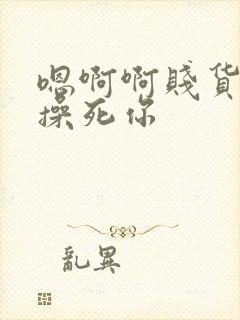 嗯啊啊賤货
操死你
亂異